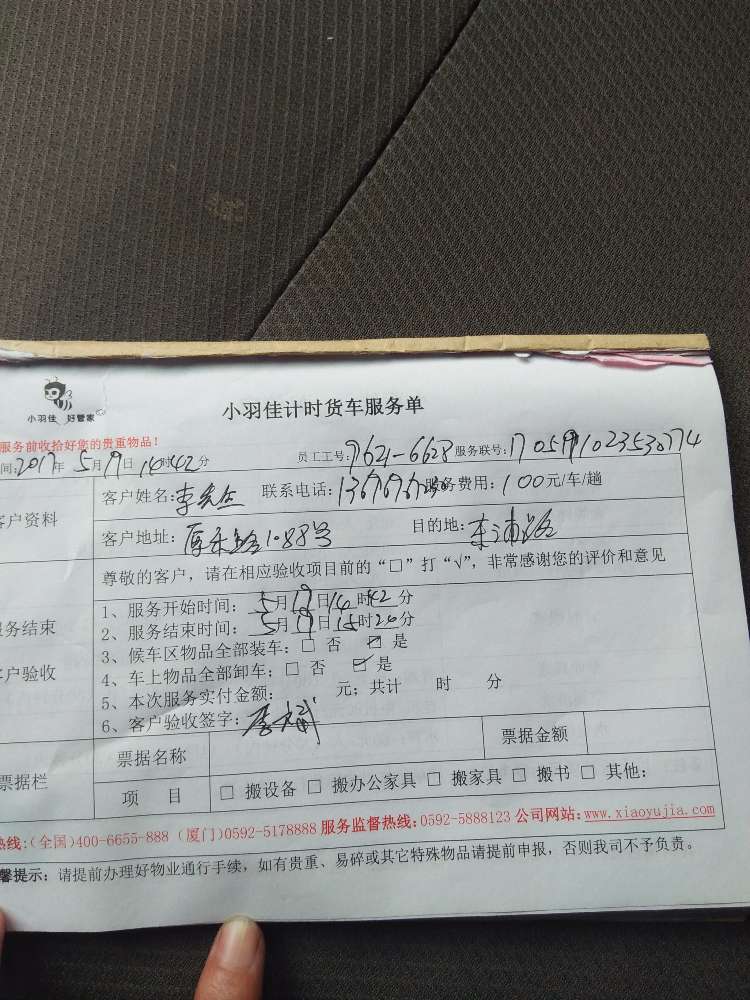 小羽佳 好管家
小羽佳计时货车服务单
服务前收拾好您的贵重物品!
间:2017年 5月19日 14时42分 员工工号:7621-6628 服务联号:1705191023530774
客户资料
客户姓名: 联系电话: 服务费用:100元/车/趟
客户地址: 1088号 目的地:东浦路
尊敬的客户,请在相应验收项目前的“□”打“√”,非常感谢您的评价和意见
服务结束
客户验收
1、服务开始时间:5月19日14时42分
2、服务结束时间:5月19日15时20分
3、候车区物品全部装车:□ 否 ☑ 是
4、车上物品全部卸车:□ 否 ☑ 是
5、本次服务实付金额: 元;共计 时 分
6、客户验收签字:
票据栏
票据名称 票据金额
项 目 □ 搬设备 □ 搬办公家具 □ 搬家具 □ 搬书 □ 其他:
热线:(全国)400-6655-888 (厦门)0592-5178888 服务监督热线:0592-5888123 公司网站:www.xiaoyujia.com
馨提示:请提前办理好物业通行手续,如有贵重、易碎或其它特殊物品请提前申报,否则我司不予负责。